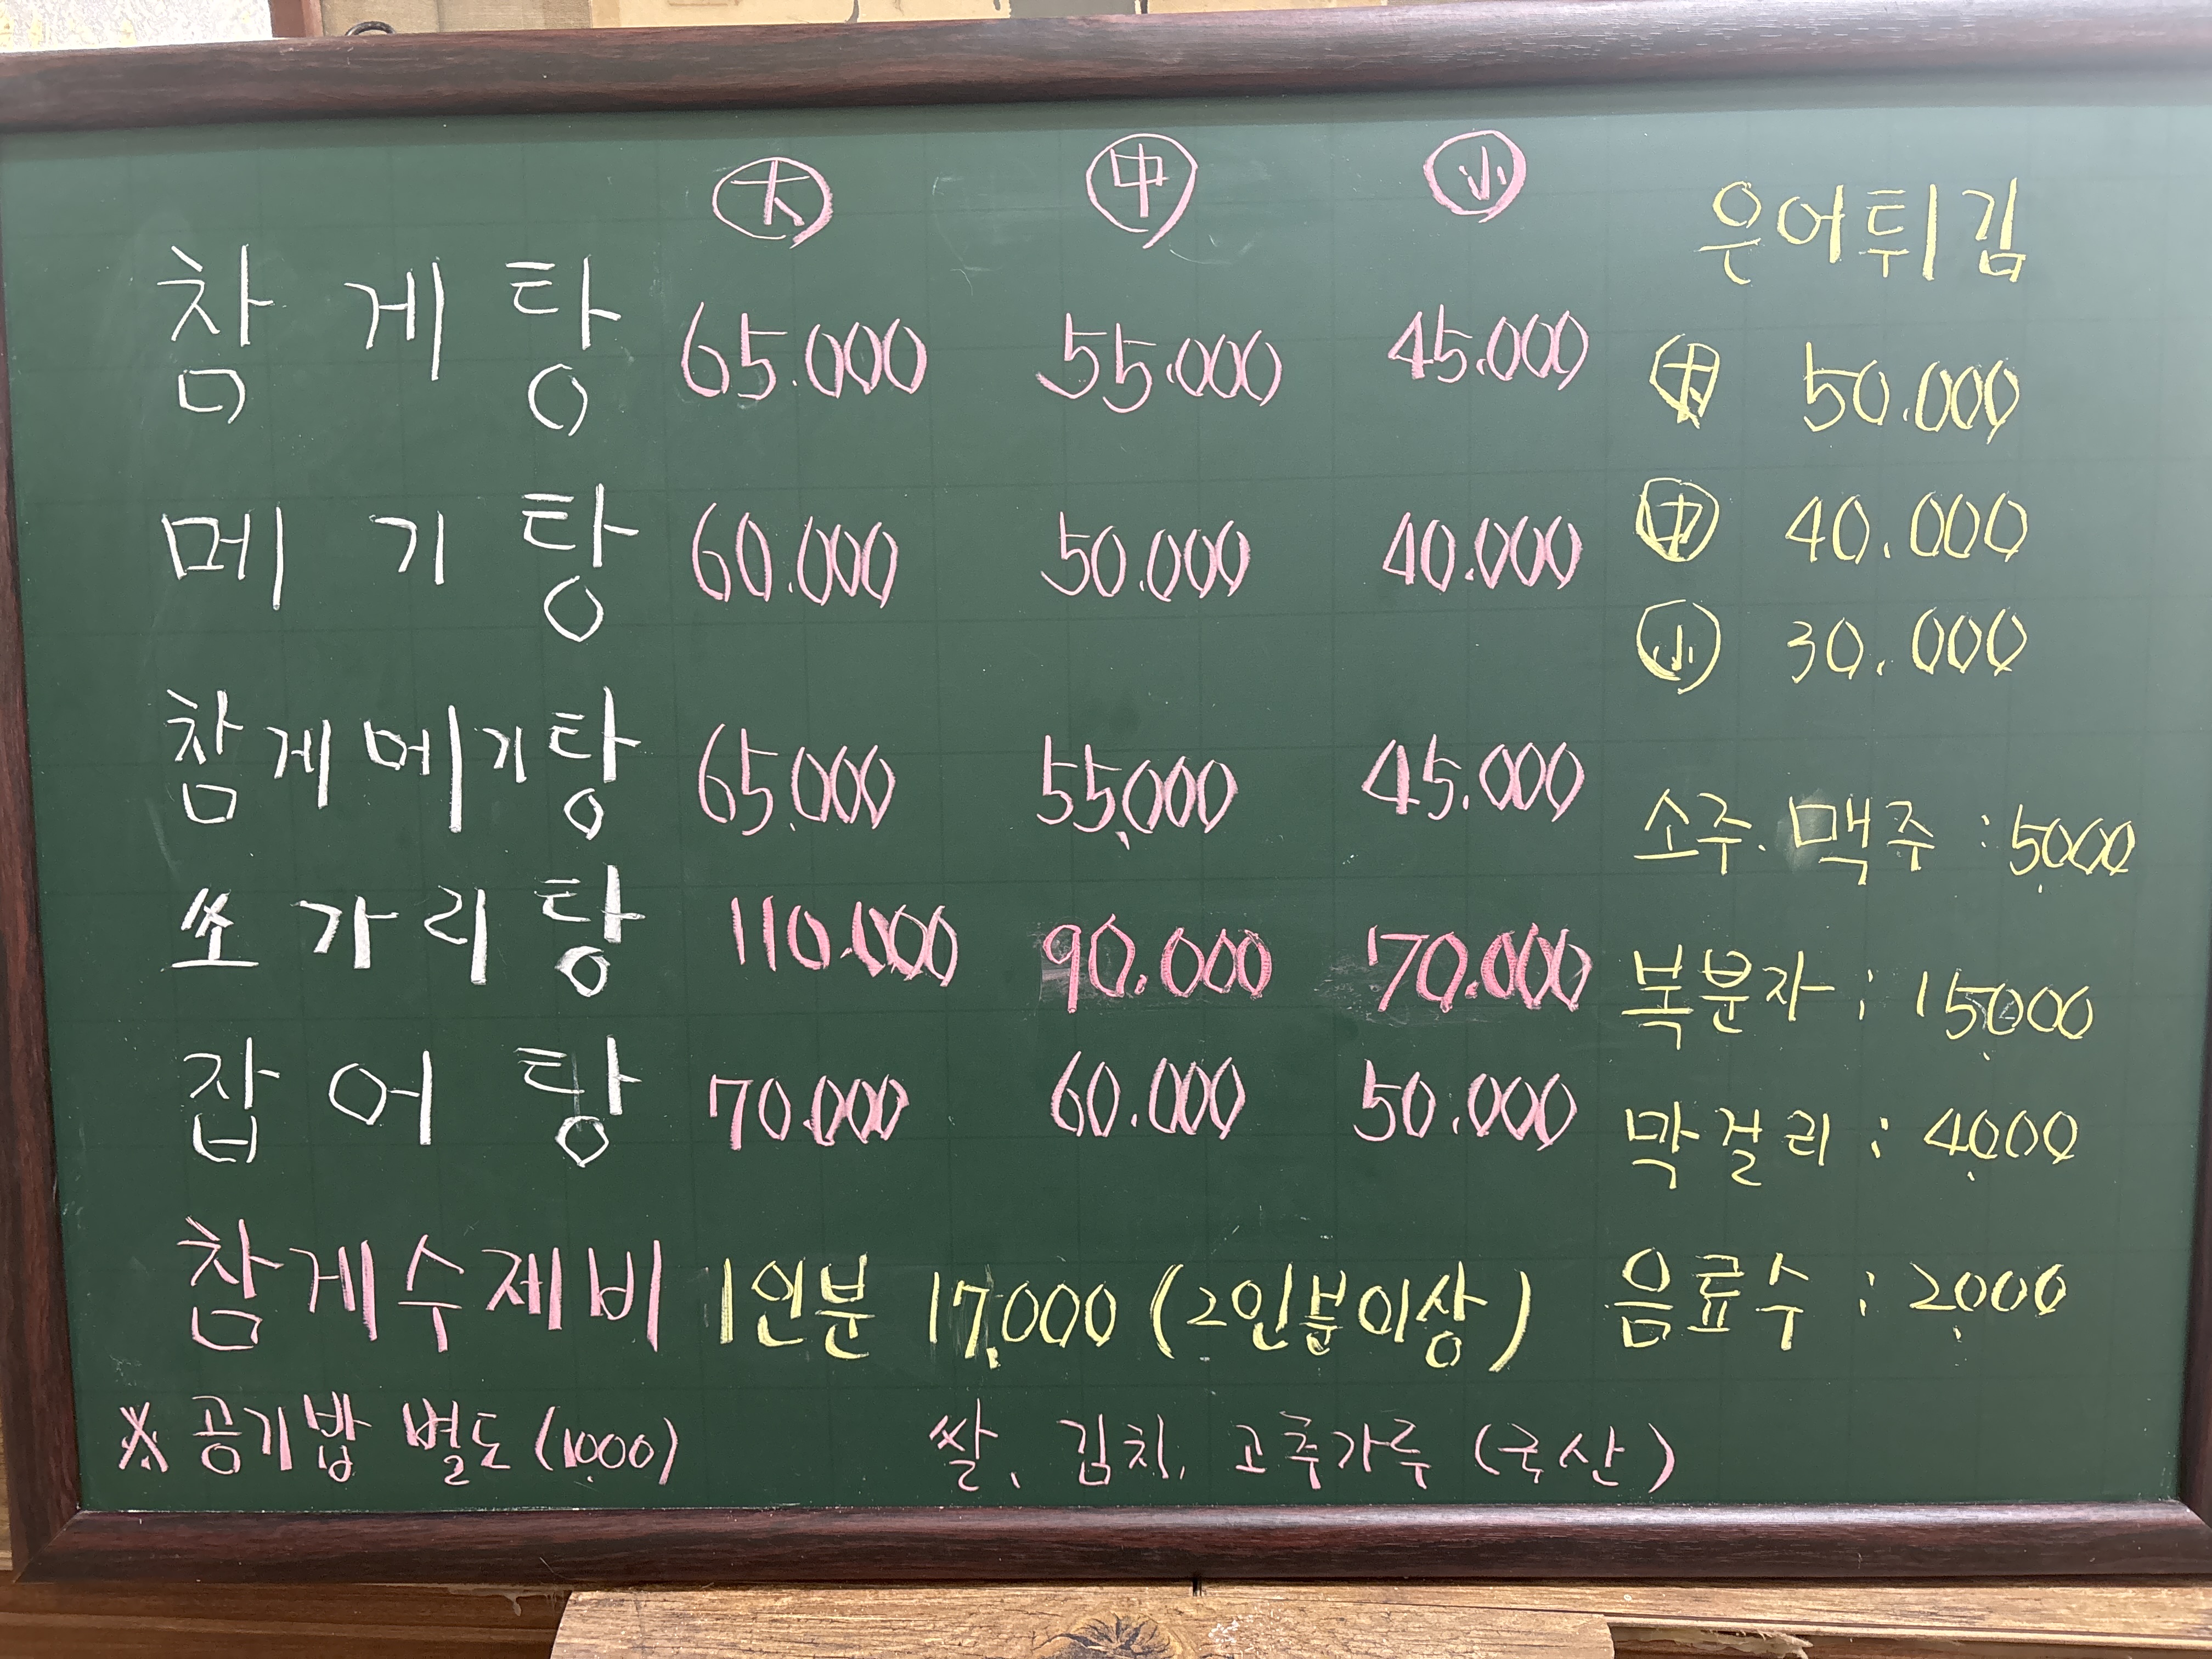 大 中 小
참게탕 65.000 55.000 45.000
메기탕 60.000 50.000 40.000
참게메기탕 65.000 55,000 45.000
쏘가리탕 110.000 90.000 70.000
잡어탕 70.000 60.000 50.000
참게수제비 1인분 17,000 (2인분이상)
※ 공기밥 별도 (1.000)
쌀, 김치, 고추가루 (국산)
은어튀김
大 50.000
中 40.000
小 30.000
소주. 맥주 : 5.000
복분자 : 15.000
막걸리 : 4.000
음료수 : 2.000